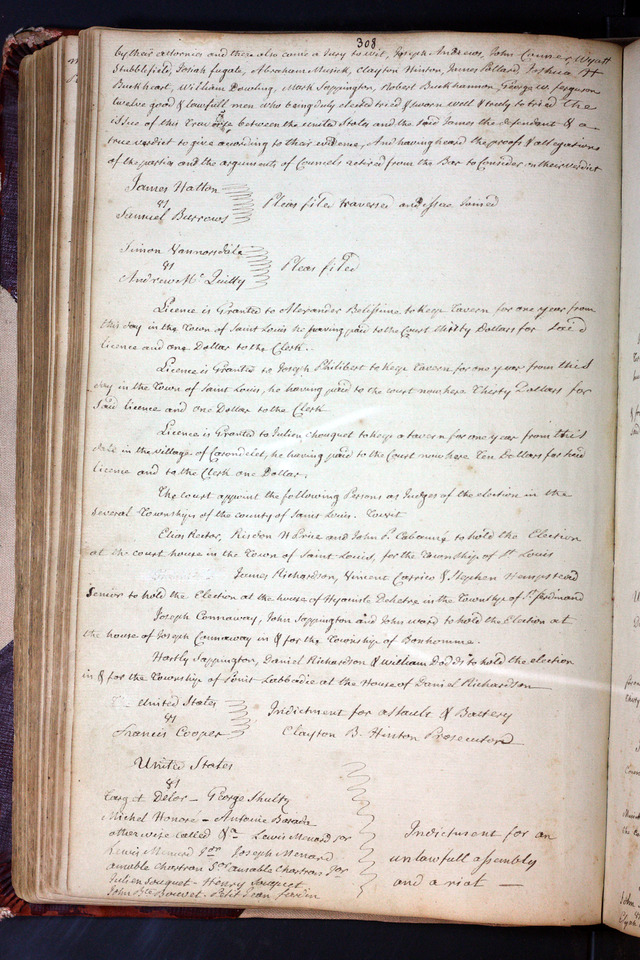 308
by their attornies and there also came a Jury to wit, Joseph Andrews, John Conner, Wyatt
Stubblefield, Josiah fugate, Abraham Musick, Clayton Hinton, James Pollard, Joshua H
Burkheart, William Dowling, Mark Sappington, Robert Buckhannon George W. ferguson
twelve good & lawfull men who being duly elected tried & sworn well & truly to tried the
issue of this Traverse between the united States and the said James the defendant & a
true verdict to give according to their evidence, And having heard the proofs & allegations
of the parties and the arguments of Counsels retired from the Bar to Consider on their verdict
James Hatton
vs
Samuel Burrows
Pleas filed traversed and issue Joined
Simon Vannorsdale
vs
Andrew Mc Quitty
Pleas filed
Licence is Granted to Alexander Belissime to keep Tavern for one year from
this day in the Town of Saint Louis he having paid to the Court thirty Dollars for said
licence and one Dollar to the Clerk.
Licence is Granted to Joseph Philibert to keep Tavern for one year from this
day in the Town of Saint Louis, he having paid to the court now here Thirty Dollars for
Said licence and one Dollar to the Clerk
Licence is Granted to Julien Chouquet to keep a tavern for one year from this
date in the village of Carondelet, he having paid to the Court now here Ten Dollars for said
licence and to the Clerk one Dollar,
The court appoint the following Persons as Judges of the election in the
several Townships of the county of Saint Louis. Towit
Elias Rector, Risdon H Price and John P. Cabanne to hold the Election
at the court house in the Town of Saint Louis, for the Township of St Louis
James Richardson, Vincent Carrico & Stephen Hempstead
Senior to hold the Election at the house of Hyacinte Dehetre in the Township of St ferdinand
Joseph Connaway, John Sappington and John Ward to hold the Election at
the house of Joseph Connaway in & for the Township of Bonhomme.
Hartly Sappington, Daniel Richardson & William Dodds to hold the election
in & for the Township of Louis Labbadie at the House of Daniel Richardson
United States
vs
Francis Cooper
Indictment for assault & Battery
Clayton B. Hinton Prosecutor
United States
vs
Delor - George Shultz
Michel Honore - Antoine Barada
otherwise called Lewis Menard Jor
Lewis Menard Jor Joseph Menard
amable Chartran Sor amable Chartran Jor
Julien Souquet - Henry Souquet
John Bte Bouvet - Petit Jean Jardin
Indictment for an
unlawfull assembly
and a riot -